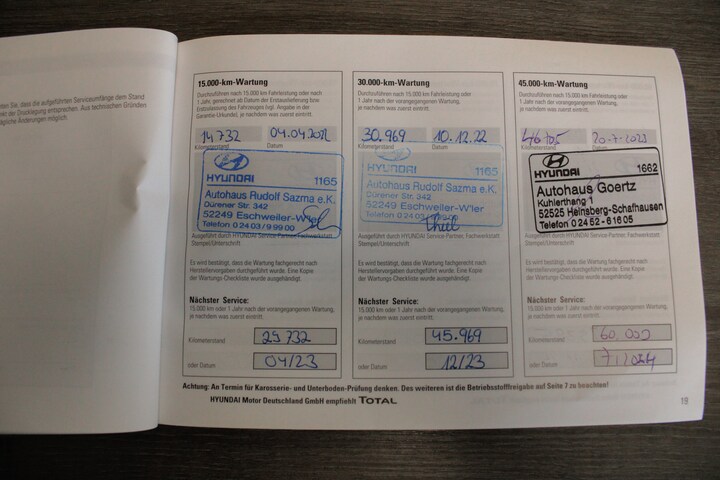 nten Sie, dass die aufgeführten Serviceumfänge dem Stand
der Drucklegung entsprechen. Aus technischen Gründen
Änderungen möglich.
15.000-km-Wartung
Durchzuführen nach 15.000 km Fahrleistung oder nach
1 Jahr, gerechnet ab Datum der Erstauslieferung bzw.
Erstzulassung des Fahrzeuges (vgl. Angabe in der
Garantie-Urkunde), je nachdem was zuerst eintritt.
14732 04.04.2022
Kilometerstand Datum
HYUNDAI 1165
Autohaus Rudolf Sazma e.K.
Dürener Str. 342
52249 Eschweiler-W'ler
Telefon 0 24 03 / 9 99 00
Ausgeführt durch HYUNDAI Service-Partner, Fachwerkstatt
Stempel/Unterschrift
Es wird bestätigt, dass die Wartung fachgerecht nach
Herstellervorgaben durchgeführt wurde. Eine Kopie
der Wartungs-Checkliste wurde ausgehändigt.
Nächster Service:
15.000 km oder 1 Jahr nach der vorangegangenen Wartung,
je nachdem was zuerst eintritt.
Kilometerstand 29732
oder Datum 04/23
30.000-km-Wartung
Durchzuführen nach 15.000 km Fahrleistung oder
1 Jahr nach der vorangegangenen Wartung,
je nachdem was zuerst eintritt.
30.969 10.12.22
Kilometerstand Datum
HYUNDAI 1165
Autohaus Rudolf Sazma e.K.
Dürener Str. 342
52249 Eschweiler-W'ler
Telefon 0 24 03
Ausgeführt durch HYUNDAI Service-Partner, Fachwerkstatt
Stempel/Unterschrift
Es wird bestätigt, dass die Wartung fachgerecht nach
Herstellervorgaben durchgeführt wurde. Eine Kopie
der Wartungs-Checkliste wurde ausgehändigt.
Nächster Service:
15.000 km oder 1 Jahr nach der vorangegangenen Wartung,
je nachdem was zuerst eintritt.
Kilometerstand 45.969
oder Datum 12/23
45.000-km-Wartung
Durchzuführen nach 15.000 km Fahrleistung oder
1 Jahr nach der vorangegangenen Wartung,
je nachdem was zuerst eintritt.
20-7-2023
Kilometerstand Datum
HYUNDAI 1662
Autohaus Goertz
Kuhlerthang 1
52525 Heinsberg-Schafhausen
Telefon 0 24 52 - 6 16 05
Ausgeführt durch HYUNDAI Service-Partner, Fachwerkstatt
Stempel/Unterschrift
Es wird bestätigt, dass die Wartung fachgerecht nach
Herstellervorgaben durchgeführt wurde. Eine Kopie
der Wartungs-Checkliste wurde ausgehändigt.
Nächster Service:
15.000 km oder 1 Jahr nach der vorangegangenen Wartung,
je nachdem was zuerst eintritt.
Kilometerstand 60.000
oder Datum 7/2024
Achtung: An Termin für Karosserie- und Unterboden-Prüfung denken. Des weiteren ist die Betriebsstofffreigabe auf Seite 7 zu beachten!
HYUNDAI Motor Deutschland GmbH empfiehlt TOTAL
19